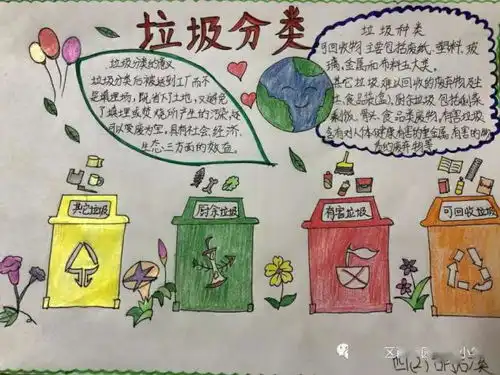 垃圾分类
垃圾分类的意义
垃圾分类后被送到工厂而不
是填埋场,既省下土地,又避免
了填埋或焚烧所产生的污染,还
可以变废为宝,具有社会、经济、
生态三方面的效益。
垃圾种类
可回收物主要包括废纸、塑料、玻
璃、金属而布料五大类。
其它垃圾难以回收的废弃物
食品
厨余垃圾包括剩菜、
剩饭、骨头、食品类废物,有害垃圾
含有对人体健康有害的重金属、有毒的
废弃物等
其它垃圾
厨余垃圾
有害垃圾
可回收垃圾
四(2)